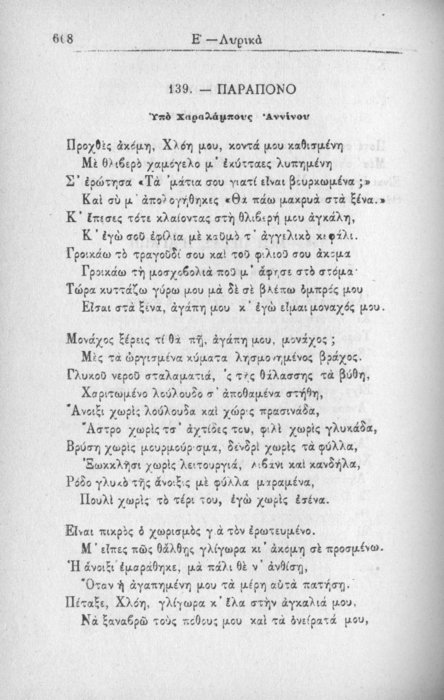 668 Ε΄ — Λυρικὰ
139. — ΠΑΡΑΠΟΝΟ
Ὑπὸ Χαραλάμπους Ἀννίνου
Προχθὲς ἀκόμη, Χλόη μου, κοντά μου καθισμένη
Μὲ θλιβερὸ χαμόγελο μ᾿ ἐκύτταες λυπημένη
Σ᾿ ἐρώτησα «Τὰ ᾿μάτια σου γιατί εἶναι βουρκωμένα ;»
Καὶ σὺ μ᾿ ἀπολογήθηκες «Θὰ πάω μακρυὰ στὰ ξένα.»
Κ᾿ ἔπεσες τότε κλαίοντας στὴ θλιβερή μου ἀγκάλη,
Κ᾿ ἐγὼ σοῦ ἐφίλια μὲ καϋμὸ τ᾿ ἀγγελικὸ κεφάλι.
Γροικάω τὸ τραγοῦδί σου καὶ τοῦ φιλιοῦ σου ἀκόμα
Γροικάω τὴ μοσχοβολιὰ ποῦ μ᾿ ἄφησε στὸ στόμα·
Τώρα κυττάζω γύρω μου μὰ δὲ σὲ βλέπω ὀμπρός μου
Εἶσαι στὰ ξένα, ἀγάπη μου κ᾿ ἐγὼ εἶμαι μοναχός μου.
Μονάχος ξέρεις τί θὰ πῇ, ἀγάπη μου, μονάχος ;
Μὲς τὰ ὠργισμένα κύματα λησμονημένος βράχος.
Γλυκοῦ νεροῦ σταλαματιά, ᾿ς τῆς θάλασσης τὰ βύθη,
Χαριτωμένο λούλουδο σ᾿ ἀποθαμένα στήθη,
Ἄνοιξι χωρὶς λούλουδα καὶ χώρις πρασινάδα,
Ἄστρο χωρὶς τσ᾿ ἀχτίδες του, φιλὶ χωρὶς γλυκάδα,
Βρύση χωρὶς μουρμούρισμα, δενδρὶ χωρὶς τὰ φύλλα,
Ἐωκκλῆσι χωρὶς λειτουργιά, λιβάνι καὶ κανδήλα,
Ρόδο γλυκὸ τῆς ἄνοιξις μὲ φύλλα μαραμένα,
Πουλὶ χωρὶς τὸ τέρι του, ἐγὼ χωρὶς ἐσένα.
Εἶναι πικρὸς ὁ χωρισμὸς γιὰ τὸν ἐρωτευμένο.
Μ᾿ εἶπες πῶς θἄλθῃς γλίγωρα κι᾿ ἀκόμη σὲ προσμένω.
Ἡ ἄνοιξι ἐμαράθηκε, μὰ πάλι θὲ ν᾿ ἀνθίσῃ,
Ὅταν ἡ ἀγαπημένη μου τὰ μέρη αὐτὰ πατήσῃ.
Πέταξε, Χλόη, γλίγωρα κ᾿ ἔλα στὴν ἀγκαλιά μου,
Νὰ ξαναβρῶ τοὺς πόθους μου καὶ τὰ ὀνείρατά μου,